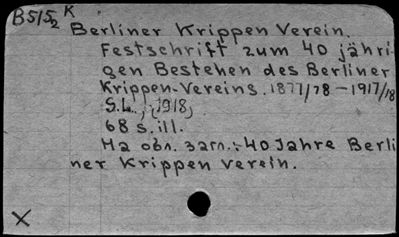 B515/2 K
Berliner Krippen Verein.
Festschrift zum 40 jähri-
gen Bestehen des Berliner
Krippen-Vereins. 1877/78-1917/18
S.L., (1918,
68 s. ill.
На обл. загл.: 40 Jahre Berli
ner Krippen Verein.
X